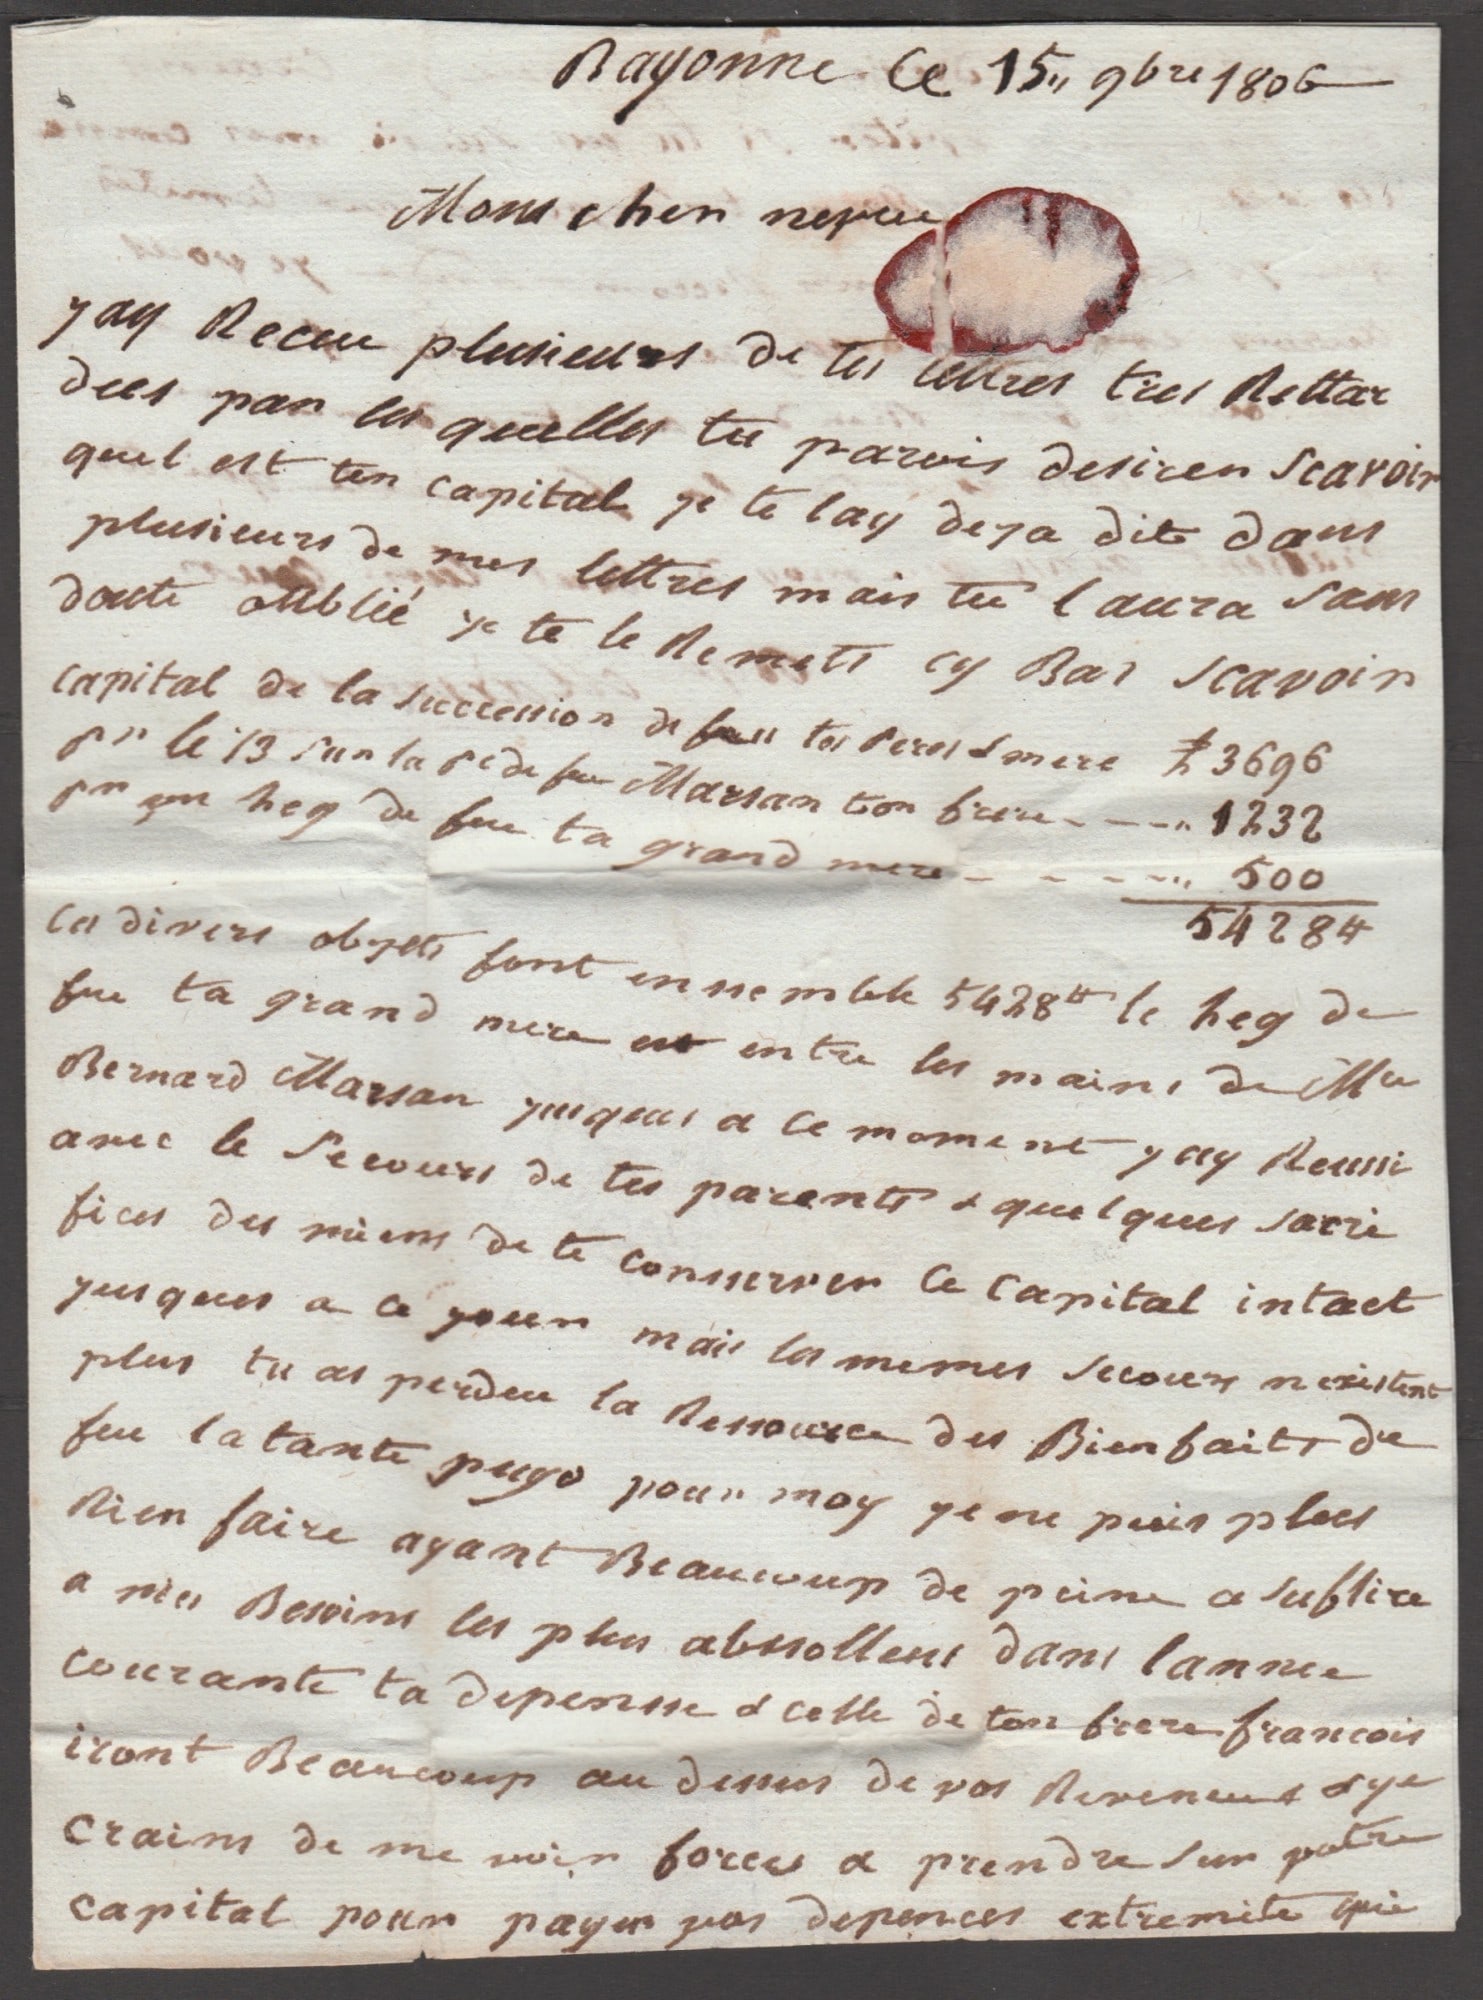 Bayonne Ce 15,, 9bre 1806
Mons cher neveu
yay Receu plusieurs de tes lettres tres Rettar
dees par les quelles tu parois desirer scavoir
quel est ton capital ye te lay deya dit dans
plusieurs de mes lettres mais tu laura sans
doute oublié ye te le Remets cy Bas scavoir
capital de la succession de feu tes peres & mere ₶ 3696
pr le 1/3 sur la pe de feu Marsan ton frere - - - -,, 1232
pr un heg de feu ta grand mere - - - - - -,, 500
5428₶
Ces divers obyets font enssemble 5428₶ le heg de
feu ta grand mere est entre les mains de Mr
Bernard Marsan yusques a ce moment yay Reussi
avec le Secours de tes parents & quelques sacri
fices des miens de te consserver Ce Capital intact
yusques a ce your mais les memes secours nexistent
plus tu as perdeu la Ressource des Bienfaits de
feu la tante puyo pour moy ye ne puis plus
Rien faire ayant Beaucoup de peine a suffire
a mes Besoins les plus abssolleus dans lannee
courante ta depensse & celle de ton frere francois
iront Beaucoup au dessus de vos Reveneus & ye
crains de me voir forces a prendre sur votre
capital pour payer vos depences extremite qui